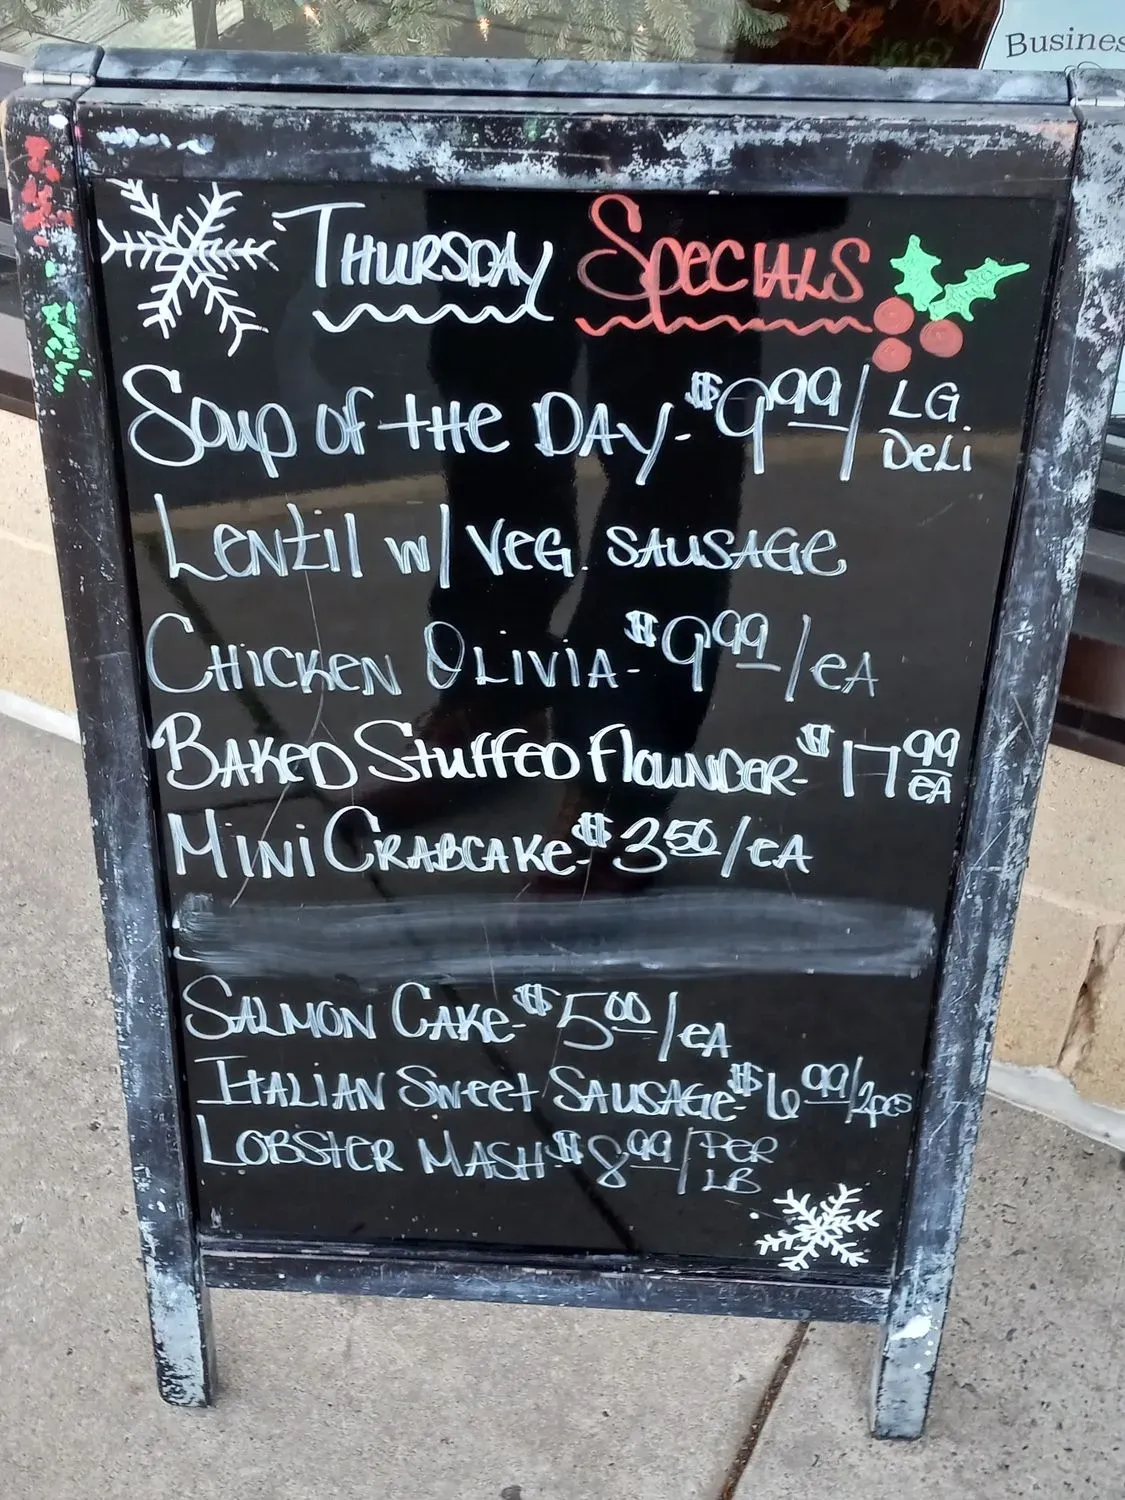 Busines
THURSDAY SPeCIALS
Soup OF tHe DAY - $9.99 / LG DeLi
LeNtil w/ VeG. SAUSAGe
CHiCKeN OLiViA - $9.99 / eA
BAKeD StuffeD flOUNDeR - $17.99 eA
MiNi CRABCAKe - $3.50 / eA
SALMON CAKe - $5.00 / eA
ItALiAN Sweet SAUSAGe - $6.99 / 2pcs
LOBSteR MASH - $8.99 / PeR LB